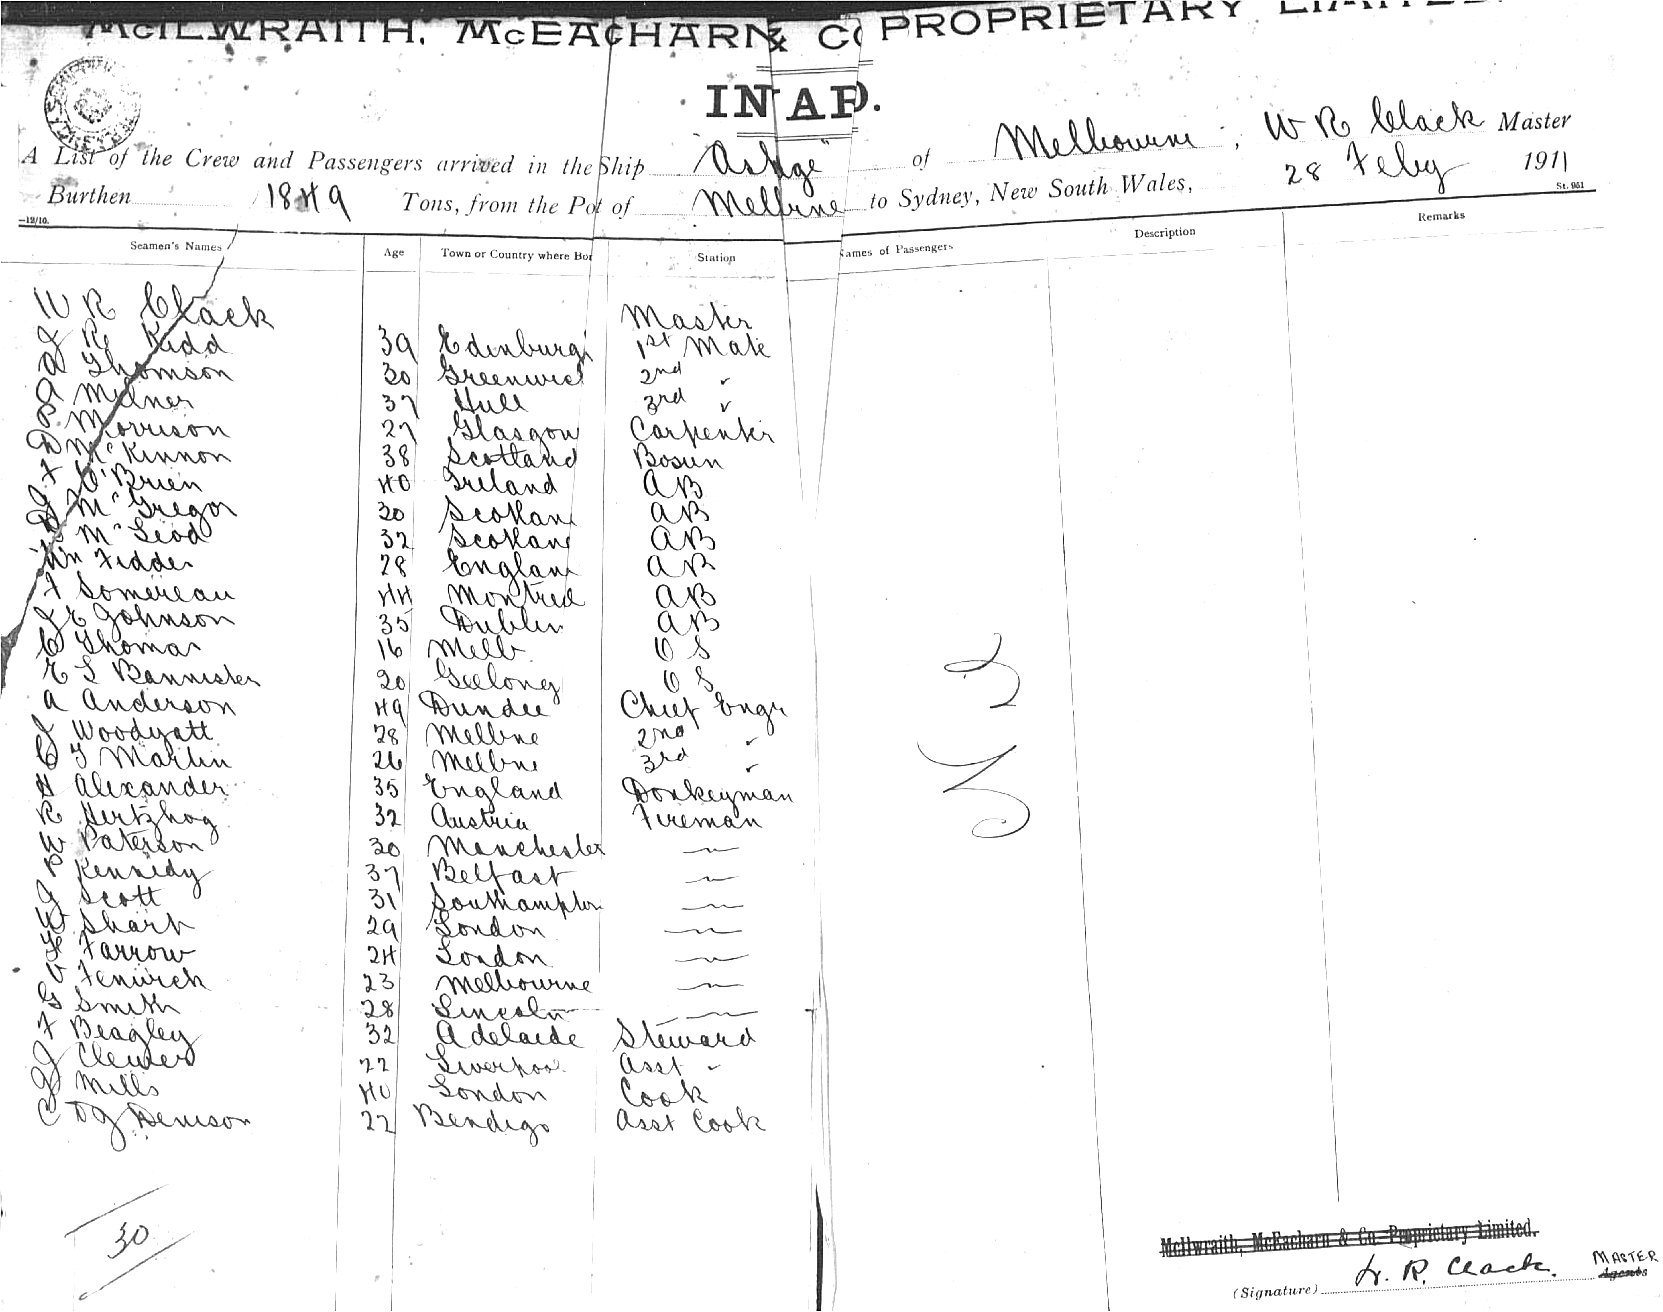 McILWRAITH, McEACHARN & Co PROPRIETARY LIMITED
A List of the Crew and Passengers arrived in the Ship "As ge" of Melbourne, W R Clack Master
Burthen 1849 Tons, from the Po t of Melbrne to Sydney, New South Wales, 28 Feby 1911
—12/10. St. 961
Seamen's Names Age Town or Country where Bor Station Names of Passengers Description Remarks
W R Clack Master
J R Kidd 39 Edinburg 1st Mate
A Thomson 30 Greenwic 2nd "
A Milner 37 Hull 3rd "
P Morrison 27 Glasgow Carpenter
D McKinnon 38 Scotland Bosun
F O'Brien 40 Ireland AB
J McGregor 30 Scotlan AB
D McLeod 32 Scotlan AB
Wm Fidder 28 Englan AB
F Somereau 44 Montreal AB
J E Johnson 35 Dublin AB
C Thomas 16 Melb O S
E S Bannister 20 Geelong O S
A Anderson 49 Dundee Chief Engr
J Woodyatt 28 Melbne 2nd "
C J Martin 26 Melbne 3rd "
H Alexander 35 England Donkeyman
R Hertzhog 32 Austria Fireman
W Paterson 30 Manchester "
P Kennedy 37 Belfast "
J Scott 31 Southampton "
W Shark 29 London "
H Farrow 24 London "
V Fenwick 23 Melbourne "
G Smith 28 Lincoln "
F Beagley 32 Adelaide Steward
J Clewer 22 Liverpool Asst "
J Mills 40 London Cook
C D J Denison 22 Bendigo Asst Cook
Nil
30
McIlwraith, McEacharn & Co. Proprietary Limited.
(Signature) W. R. Clack. MASTER
Agents